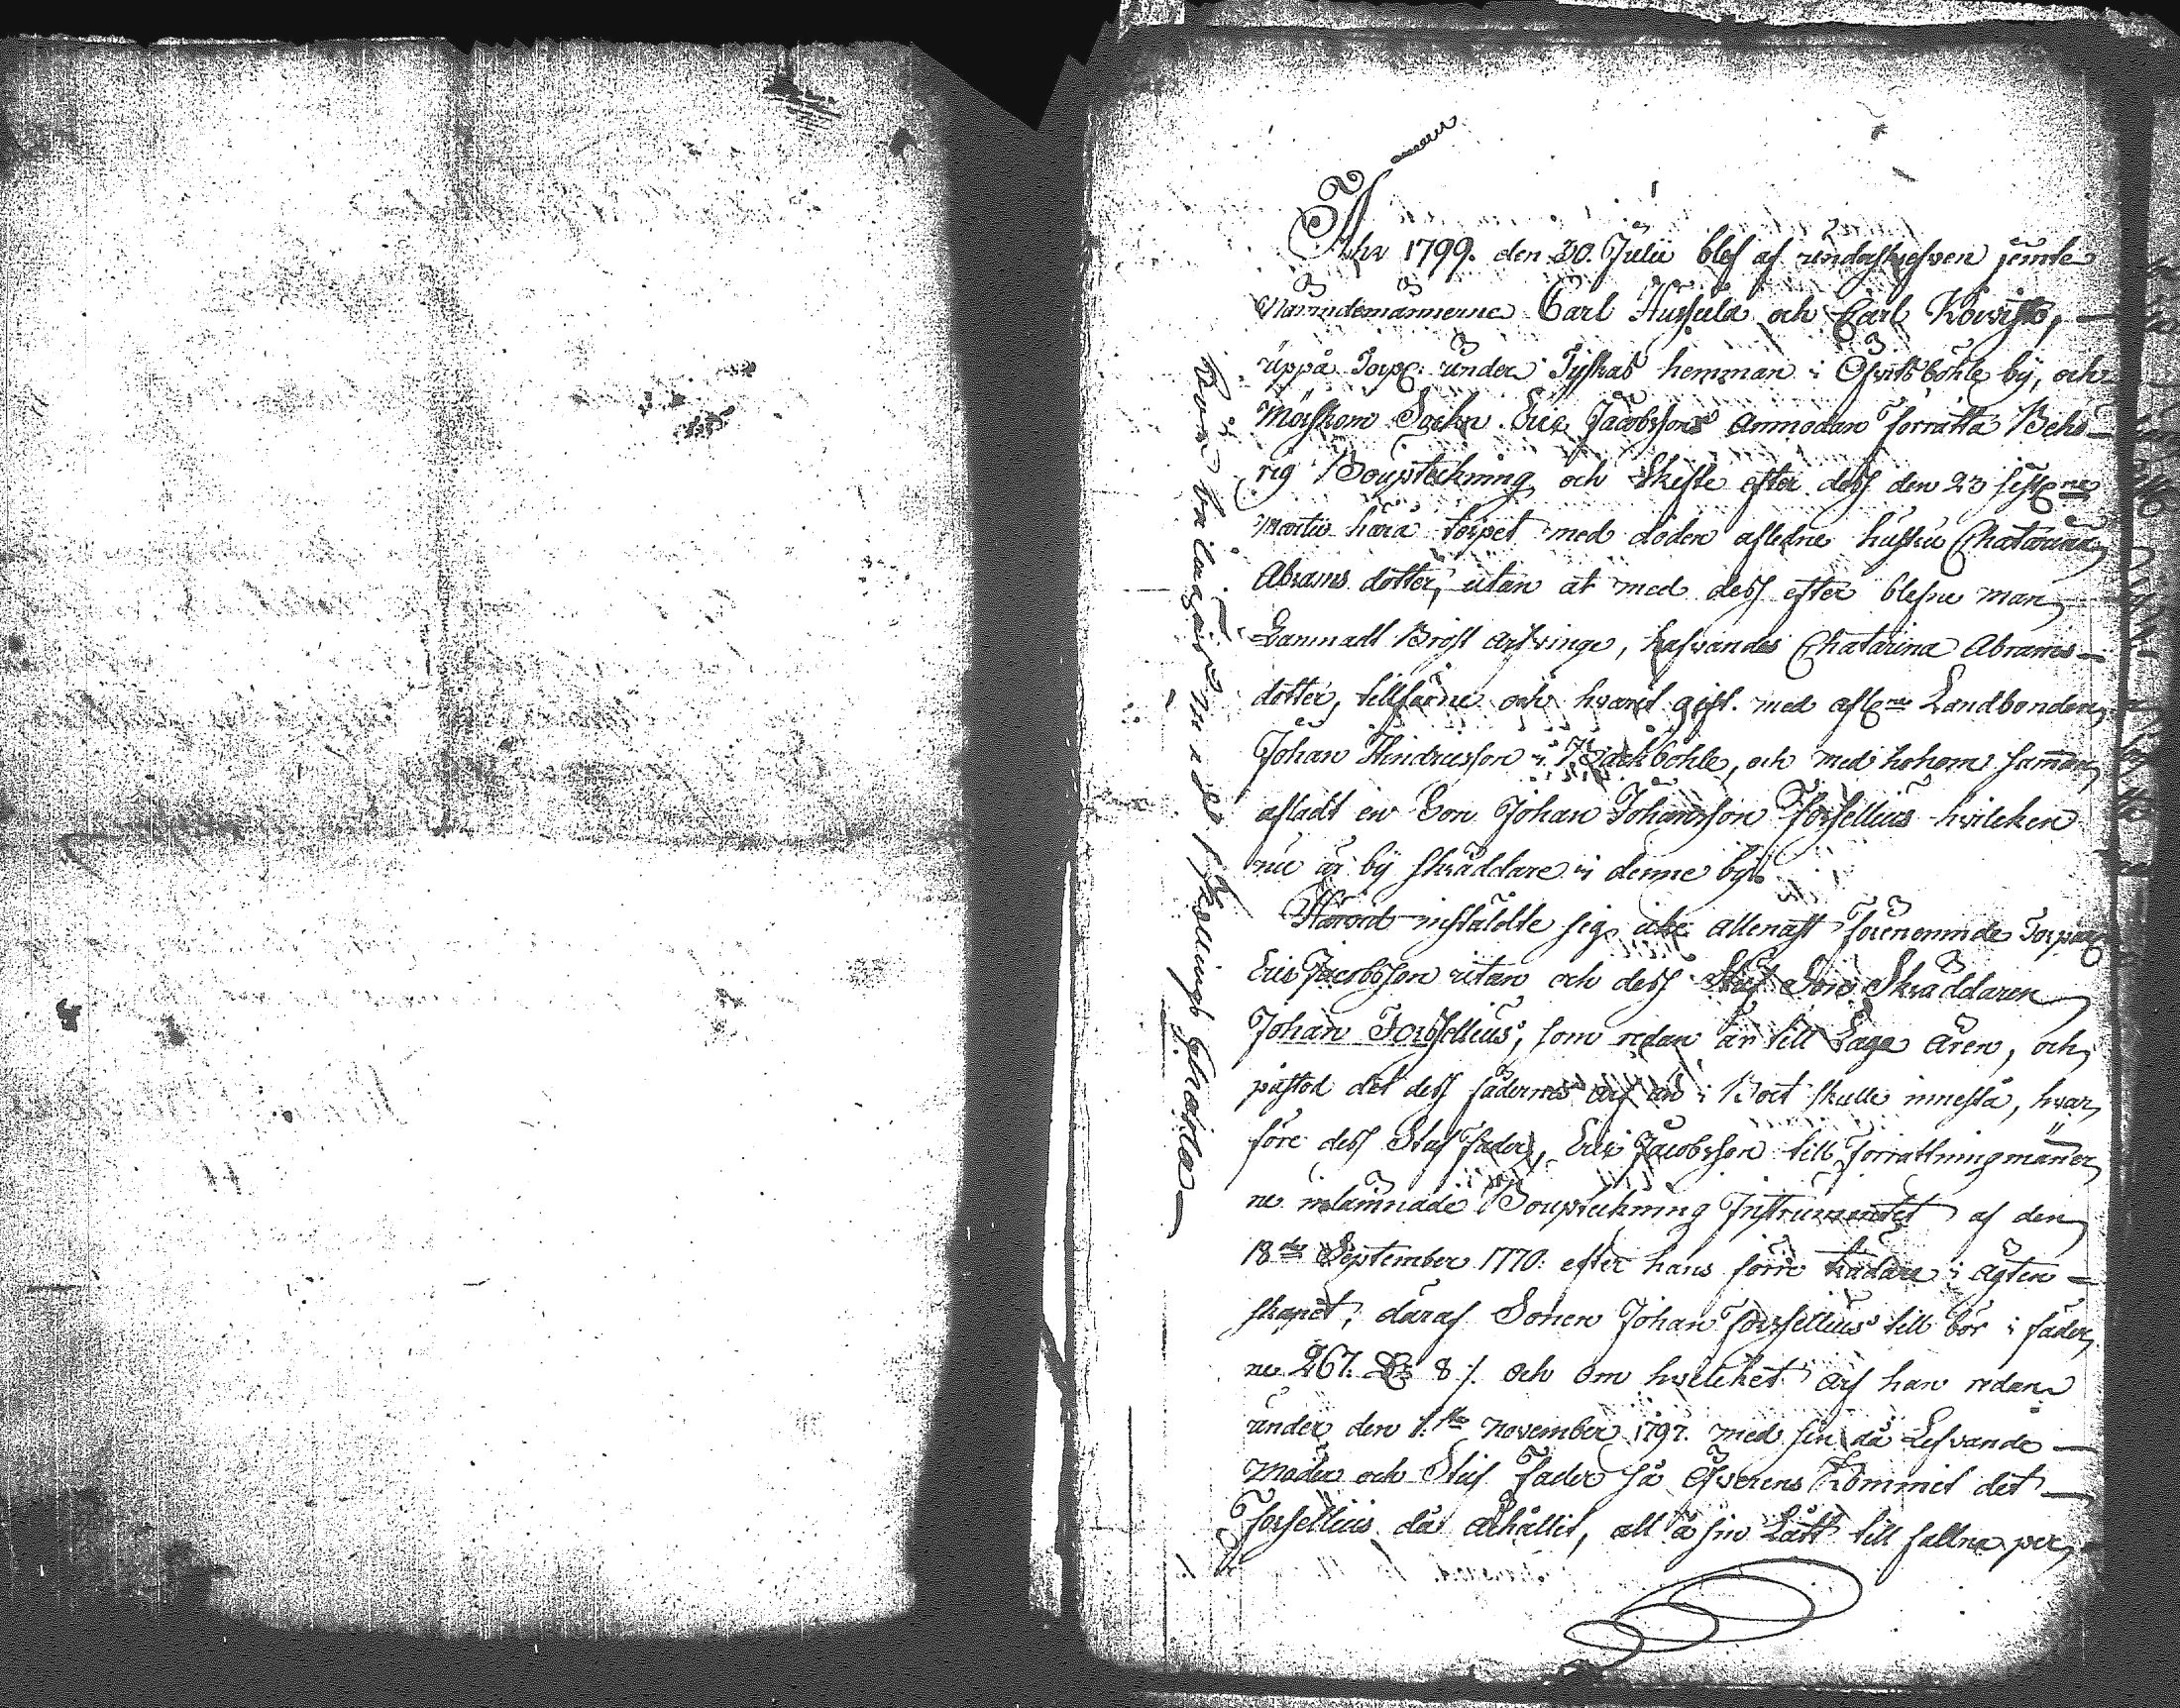 Åhr 1799. den 30. Julii blef af underskrefven jemte
Nämndemännerne Carl Hussula och Carl Kowisto,
uppå Torp: under Tyskas hemman i Ofvitsböhle bÿ, och
Mörskom Sockn Eric Jacobssons Anmodan förrätta Behö-
rig Bouptekning och Skifte efter dess den 23 sistl:ne
Martii härå torpet med döden afledne hustru Chatarina
Abrams dotter, utan at med dess efter blefne man
Lämnadt Bröst arfvinge, hafvandes Chatarina Abrams-
dotter, tillförne och hvarit gift med afl:ne Landbonden
Johan Hindricsson i Backböhle, och med honom samman
afladt en Son Johan Johansson Forssellius hvilcken
nu är bÿ skräddare i denne bÿ.
Härvid instäldte sig icke allenast förenemnde Torpare
Eric Jacobsson utan och dess Stuf Son Skräddaren
Johan Forssellius, som redan är till Laga åren, och
påstod det dess fädernes arf än i Boet skulle innestå, hvar
före dess Stuf fader, Eric Jacobsson till Förrättningmänner
ne inlämnade Bouptekning Instrumentet af den
18:de September 1770: efter hans förre trädare i ägten-
skapet, däraf Sonen Johan Forssellius till bör i fäder
ne 267. D:r 8 /. och om hvilcket arf han redan
under den 1:sta November 1797. med sin då Lefvande
Moder och Stuf Fader så Öfverens kommit det
Forsellius då ärhållit, all å sin Lått till fallne per
bevilagning med 1 /. Skillings Charta